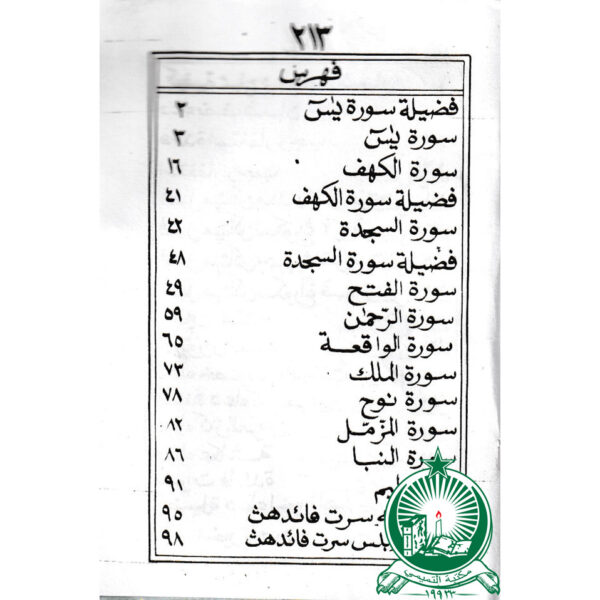 ٢١٣
فهرس
فضيلة سورة يٰسٓ ٢
سورة يٰسٓ ٣
سورة الكهف ١٦
فضيلة سورة الكهف ٤١
سورة السجدة ٤٢
فضيلة سورة السجدة ٤٨
سورة الفتح ٤٩
سورة الرّحمٰن ٥٩
سورة الواقعـة ٦٥
سورة الملك ٧٣
سورة نوح ٧٨
سورة المزمّل ٨٢
سورة النبا ٨٦
٩١
سرت فائدهڽ ٩٥
سرت فائدهڽ ٩٨
مكتبة